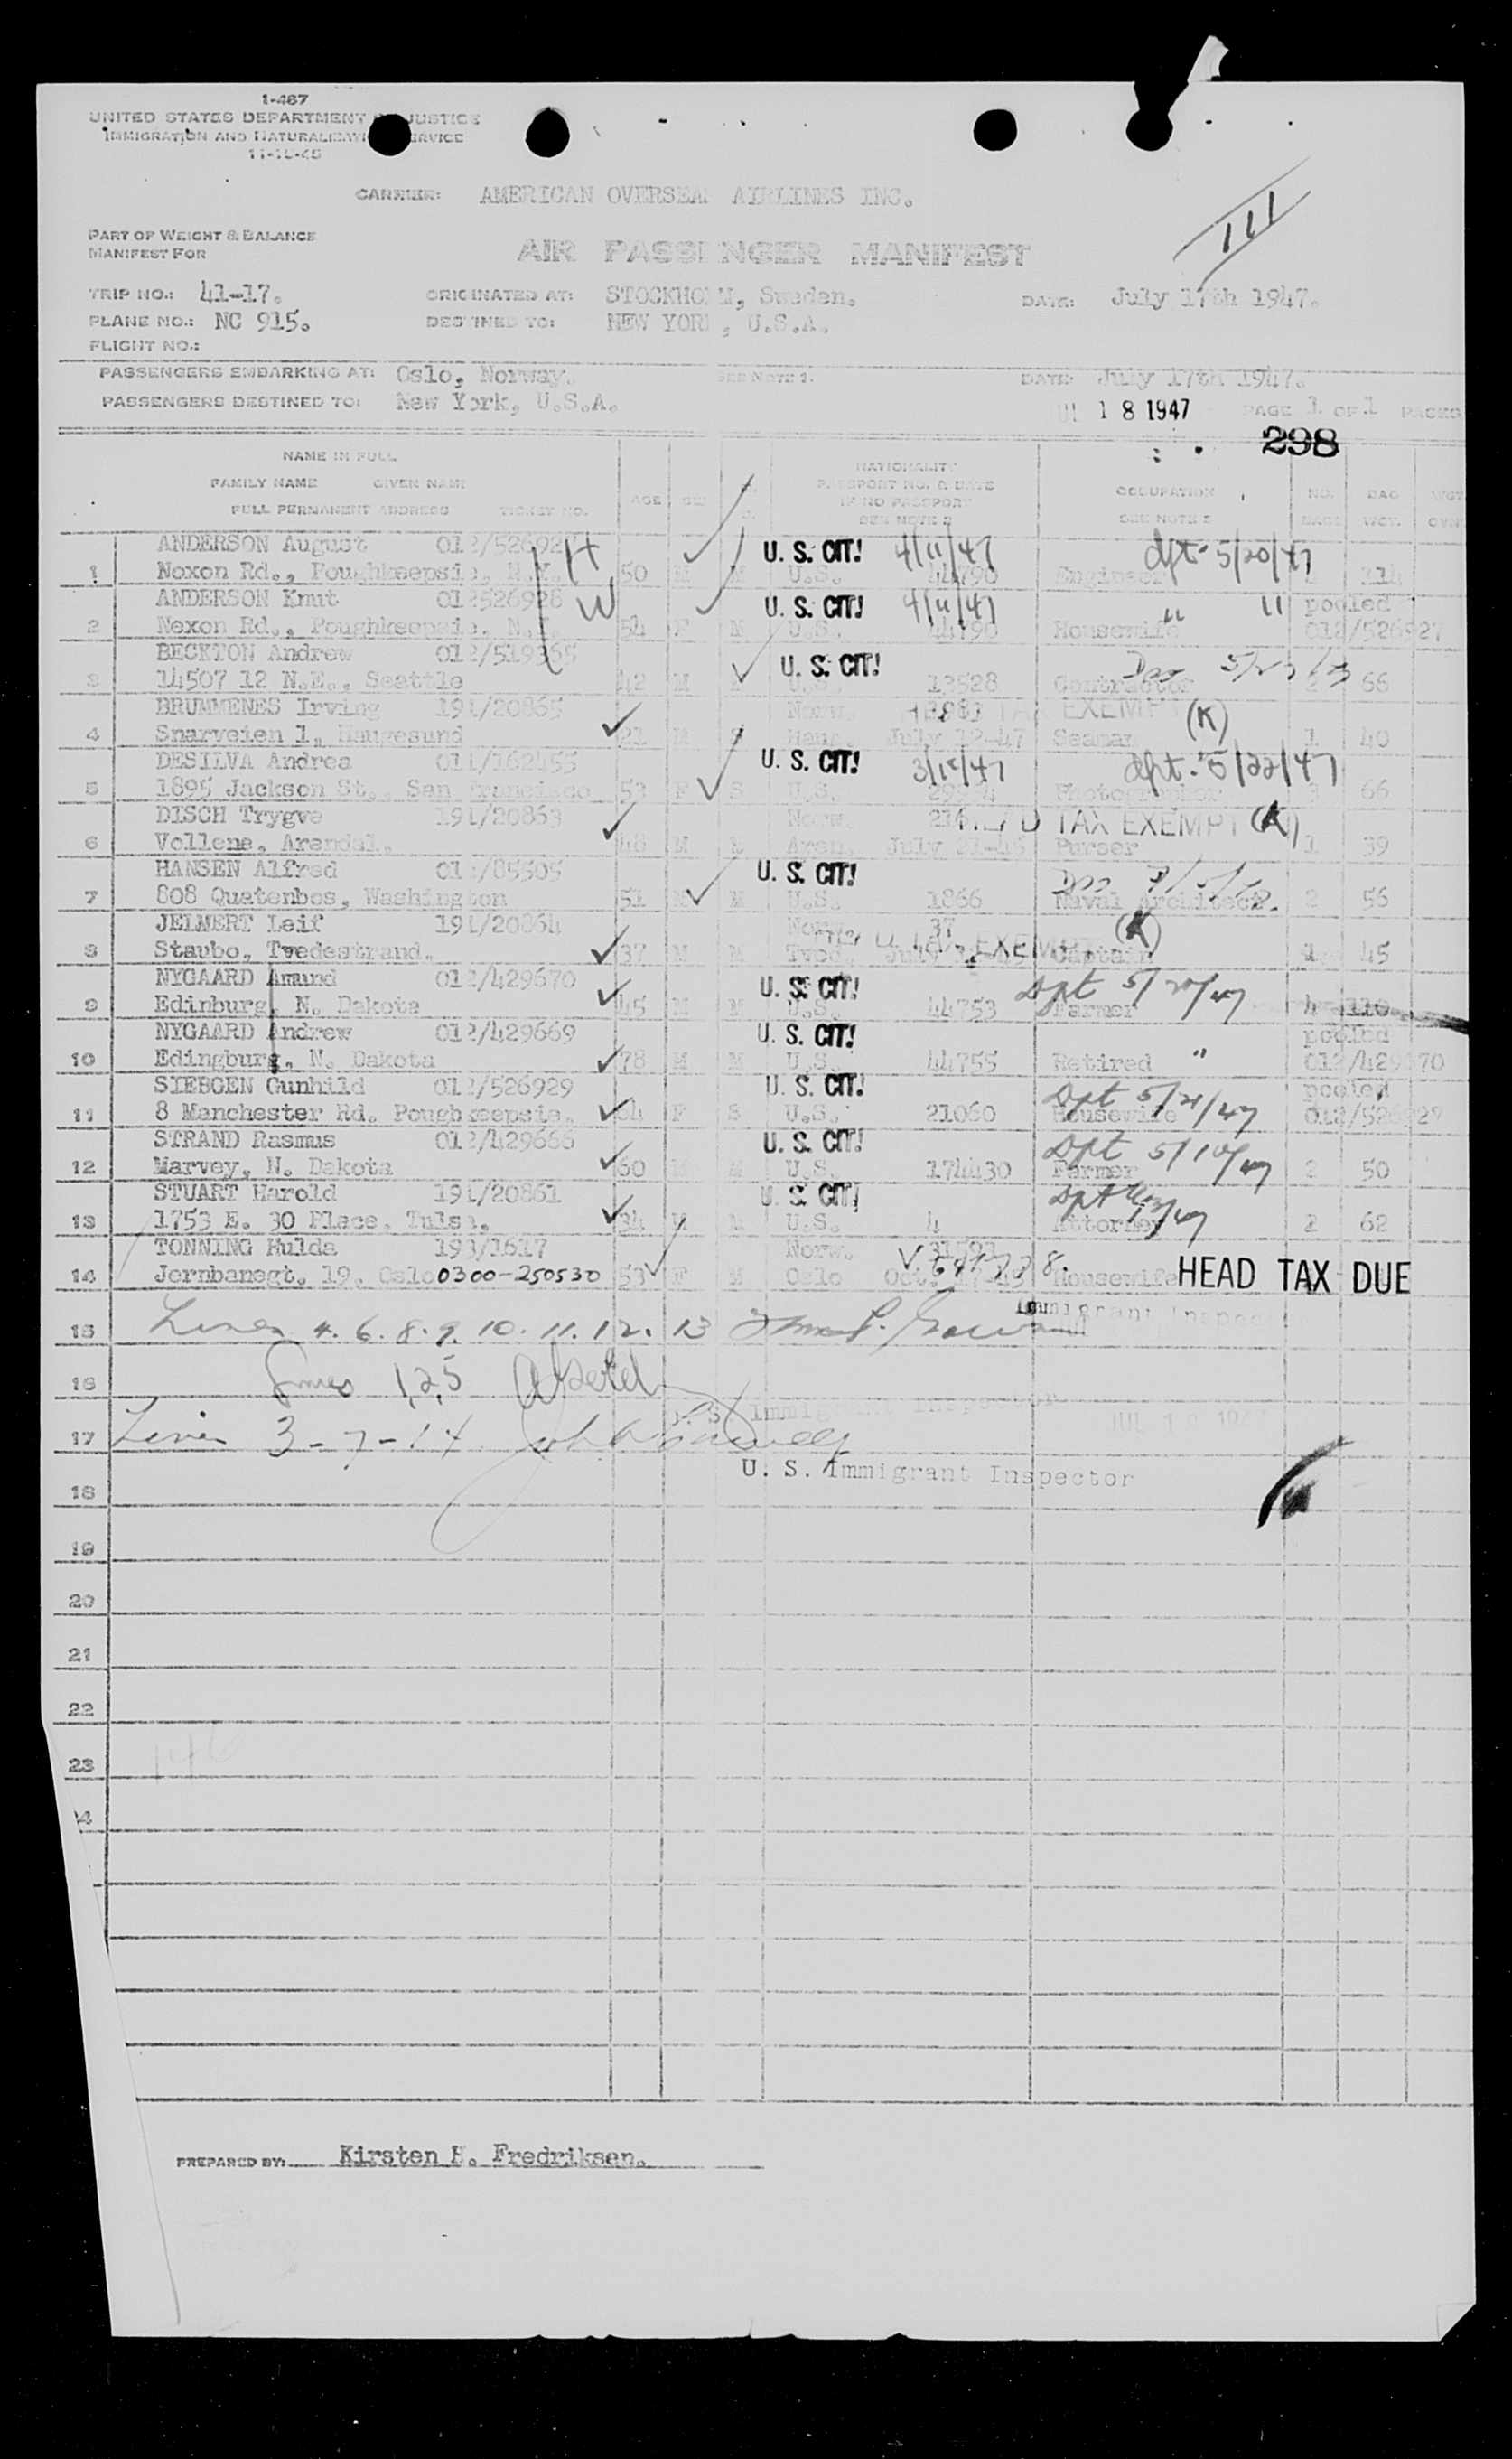 1-467
UNITED STATES DEPARTMENT JUSTICE
IMMIGRATION AND NATURALIZATION SERVICE
11-15-45
CARRIER: AMERICAN OVERSEA AIRLINES INC.
PART OF WEIGHT & BALANCE
MANIFEST FOR
AIR PASSENGER MANIFEST
111
TRIP NO.: 41-17.
ORIGINATED AT: STOCKHOLM, Sweden.
DATE: July 17th 1947.
PLANE NO.: NC 915.
DESTINED TO: NEW YORK, U.S.A.
FLIGHT NO.:
PASSENGERS EMBARKING AT: Oslo, Norway.
SEE NOTE 1.
DATE: July 17th 1947.
PASSENGERS DESTINED TO: New York, U.S.A.
18 1947
PAGE 1 OF 1 PAGES
298
NAME IN FULL
FAMILY NAME GIVEN NAME
FULL PERMANENT ADDRESS TICKET NO.
AGE
NATIONALITY
PASSPORT NO. & DATE
IF NO PASSPORT
SEE NOTE 2
OCCUPATION
NO. BAG WGT.
ANDERSON August U. S. CIT! 4/11/47 dpt-5/20/47
1 Noxon Rd., Poughkeepsie, N.Y. 50 M M U.S. 44790 Engineer
ANDERSON Knut 012526928 W U. S. CIT! 4/11/47 " " pooled
2 Noxon Rd., Poughkeepsie, N.Y. 54 F M U.S. 44790 Housewife 012/526927
BECKTON Andrew 012/519365 U. S. CIT!
3 14507 12 N.E., Seattle 42 M U.S. 13528 Contractor 2 66
BRUMMENES Irving 191/20865 Norw. EXEMPT (K)
4 Snarveien 1, Haugesund 21 M S Haug. July 12-47 Seaman 1 40
DESILVA Andrea 011/162455 U. S. CIT! dpt. 5/22/47
5 1895 Jackson St., San Francisco 53 F S U.S. Photographer 66
DISCH Trygve 191/20863 Norw. TAX EXEMPT (K)
6 Vollene, Arendal. 48 M M Aren. July Purser 1 39
HANSEN Alfred U. S. CIT!
7 808 Quatenbos, Washington 51 M M U.S. 1866 Naval Architect. 2 56
JELMERT Leif 191/20864 Norw. 37 EXEMPT (K)
8 Staubo, Tvedestrand. 37 M M Tved. July Captain 1 45
NYGAARD Amund 012/429670 U. S. CIT! Dpt 5/20/47
9 Edinburg, N. Dakota 45 M M U.S. 44753 Farmer 4 110
NYGAARD Andrew 012/429669 U. S. CIT! pooled
10 Edingburg, N. Dakota 78 M M U.S. 44755 Retired " 012/429670
SIEBGEN Gunhild 012/526929 U. S. CIT! Dpt 5/21/47 pooled
11 8 Manchester Rd. Poughkeepsie. 64 F S U.S. 21060 Housewife 012/526927
STRAND Rasmus 012/429666 U. S. CIT! Dpt 5/10/47
12 Marvey, N. Dakota 60 M M U.S. 174430 Farmer 2 50
STUART Harold 191/20861 U. S. CIT!
13 1753 E. 30 Place, Tulsa. 34 M M U.S. 4 Attorney 2 62
TONNING Hulda 193/1617 Norw.
14 Jernbanegt. 19, Oslo 0300-250530 53 F M Oslo Housewife HEAD TAX DUE
15 Lines 4. 6. 8. 9. 10. 11. 12. 13 Immigrant Inspector
16 Lines 1,2,5
U.S. Immigrant Inspector
17 Lines 3-7-14
U. S. Immigrant Inspector
18
19
20
21
22
23
PREPARED BY: Kirsten H. Fredriksen.